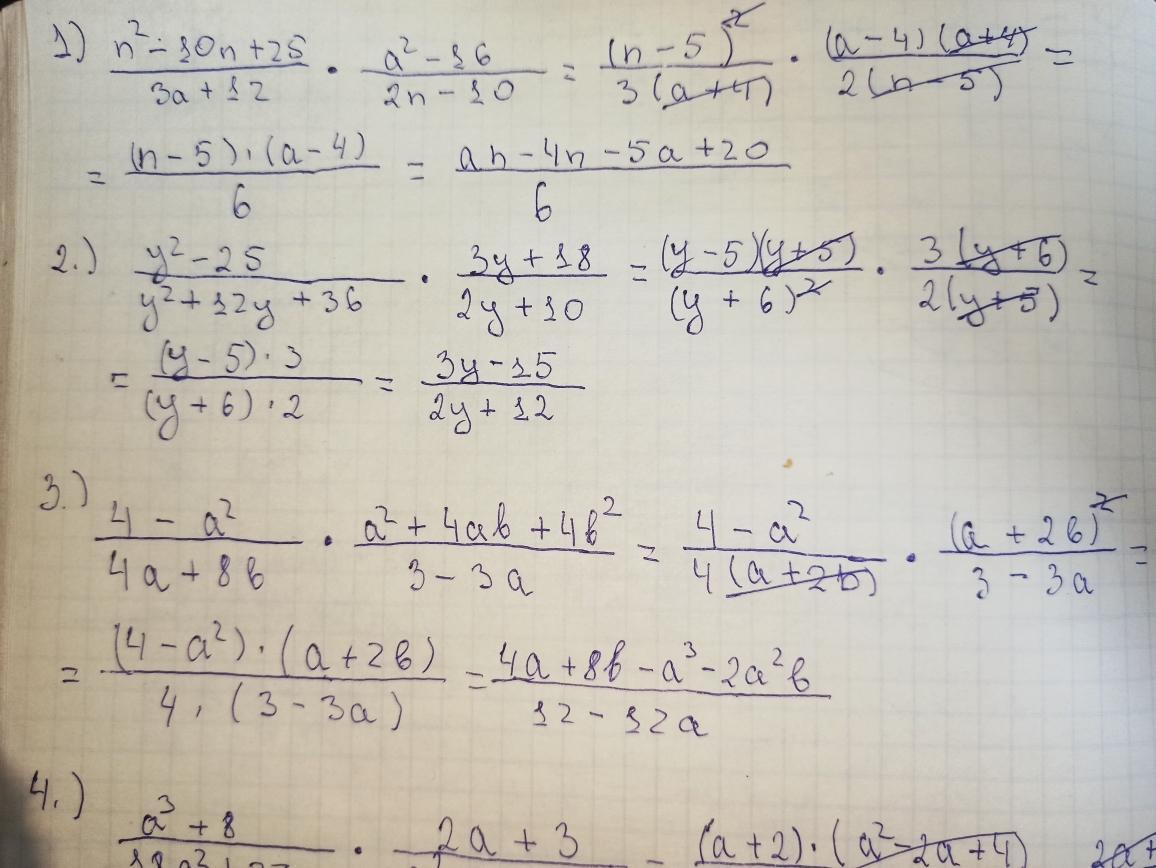 1) (n² - 10n + 25)/(3a + 12) · (a² - 16)/(2n - 10) = (n - 5)²/(3(a + 4)) · ((a - 4)(a + 4))/(2(n - 5)) =
= ((n - 5) · (a - 4))/6 = (an - 4n - 5a + 20)/6
2.) (y² - 25)/(y² + 12y + 36) · (3y + 18)/(2y + 10) = ((y - 5)(y + 5))/(y + 6)² · (3(y + 6))/(2(y + 5)) =
= ((y - 5) · 3)/((y + 6) · 2) = (3y - 15)/(2y + 12)
3.) (4 - a²)/(4a + 8b) · (a² + 4ab + 4b²)/(3 - 3a) = (4 - a²)/(4(a + 2b)) · (a + 2b)²/(3 - 3a) =
= ((4 - a²) · (a + 2b))/(4 · (3 - 3a)) = (4a + 8b - a³ - 2a²b)/(12 - 12a)
4.) a³ + 8 · 2a + 3 = (a + 2) · (a² - 2a + 4)